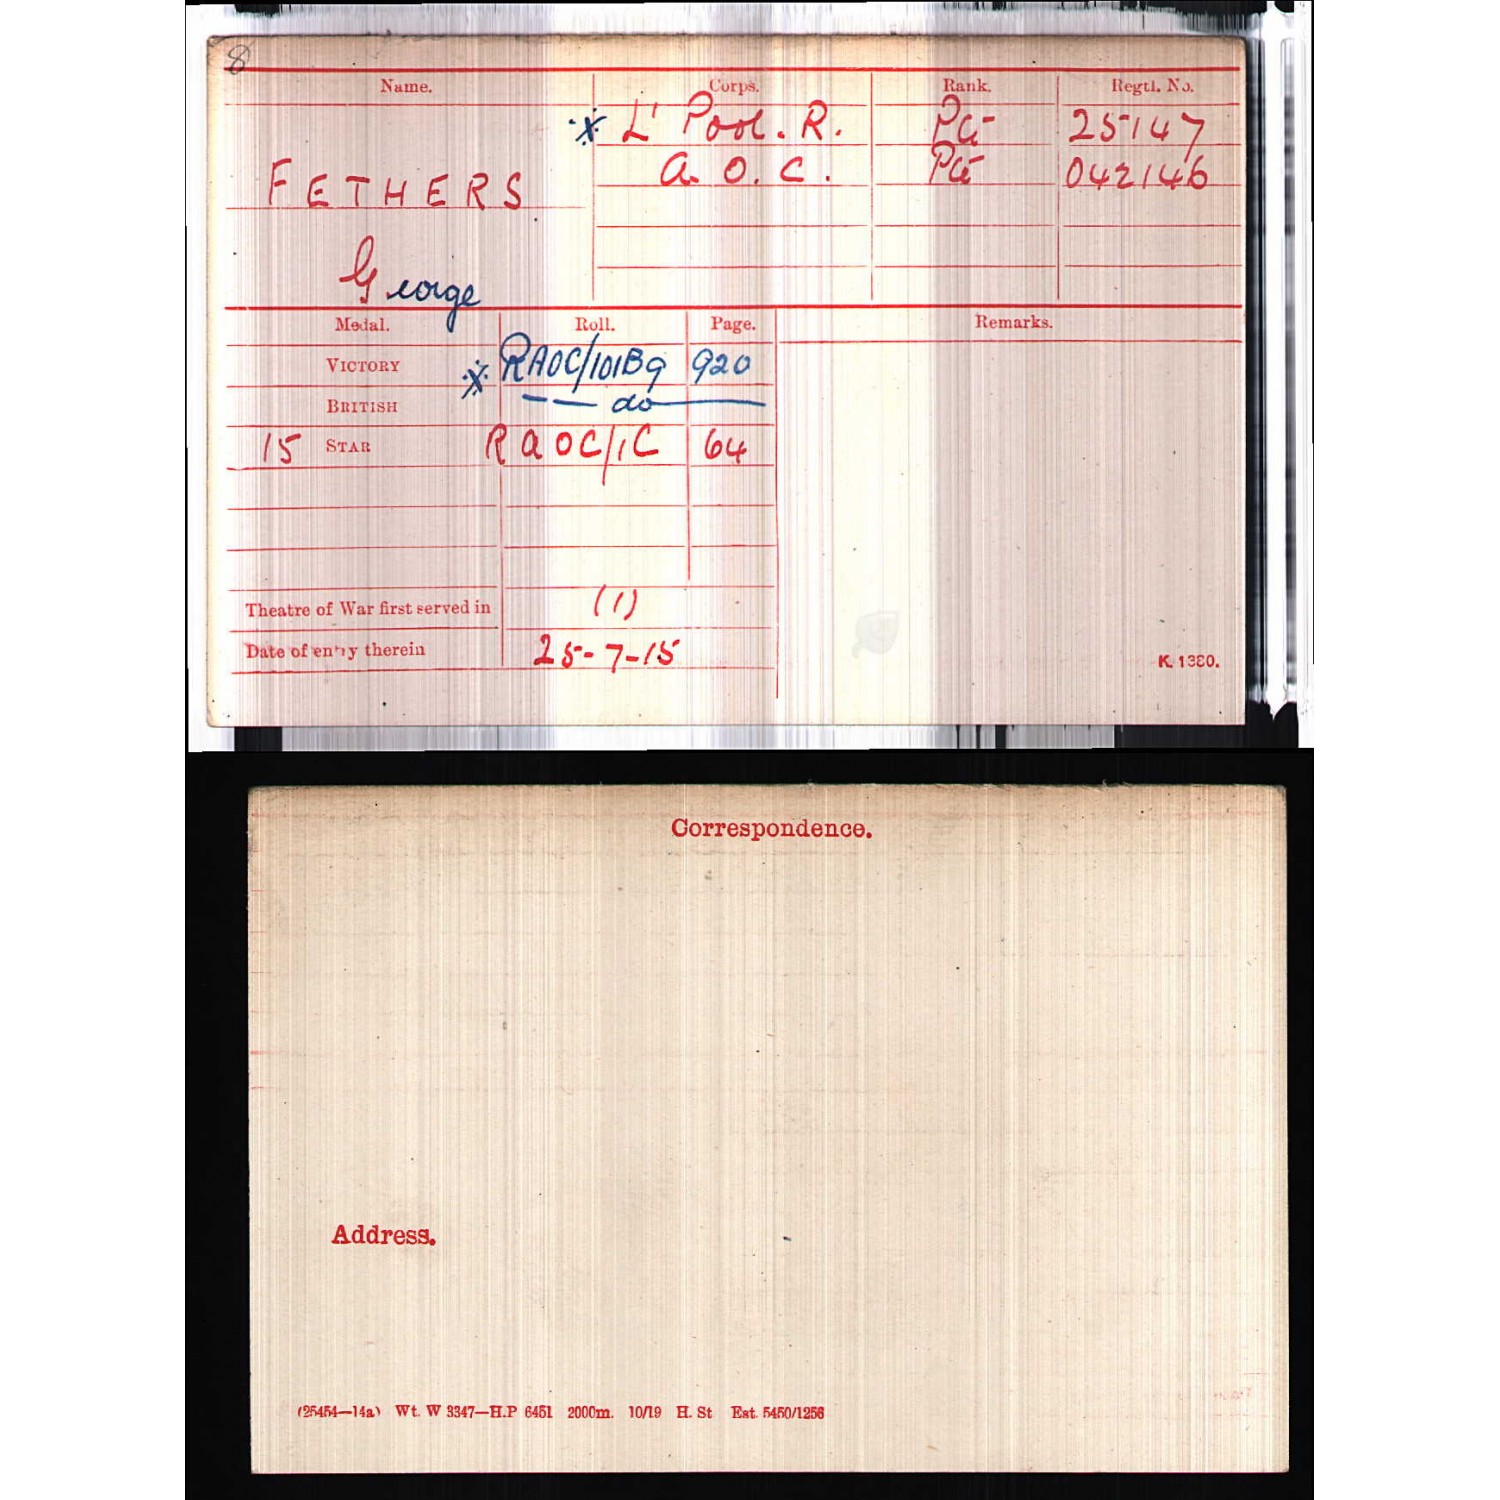 8
Name. Corps. Rank. Regtl. No.
※ L'Pool. R. Pte 25147
FETHERS A. O. C. Pte 042146
George
Medal. Roll. Page. Remarks.
VICTORY ※ RAOC/101B9 920
BRITISH — — do —
15 STAR RAOC/1C 64
Theatre of War first served in (1)
Date of entry therein 25-7-15
K. 1380.
Correspondence.
Address.
(25454—14a) Wt. W 3347—H.P 6451 2000m. 10/19 H. St Est. 5450/1256